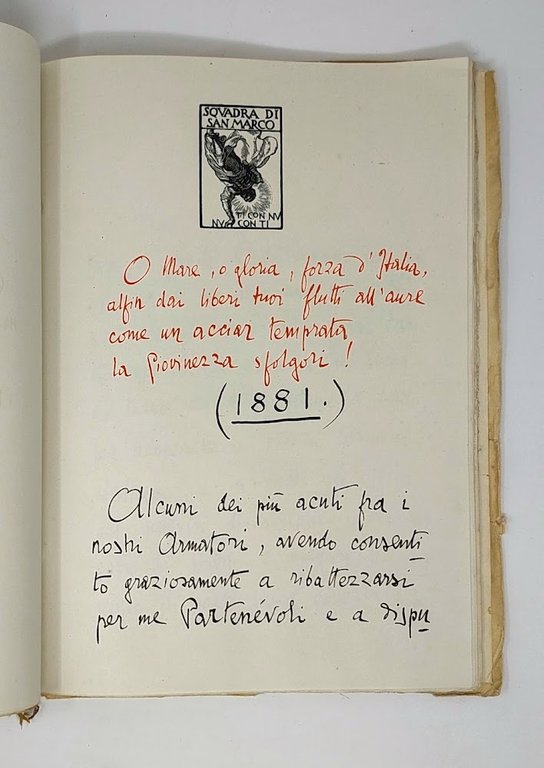 SQVADRA DI
SAN MARCO
TI CON NV
NV CON TI
O Mare, o gloria, forza d'Italia,
alfin dai liberi tuoi flutti all'aure
come un acciar temprata
la Giovinezza sfolgori!
(1881.)
Alcuni dei più acuti fra i
nostri Armatori, avendo consenti
to graziosamente a ribattezzarsi
per me Partenévoli e a dispu